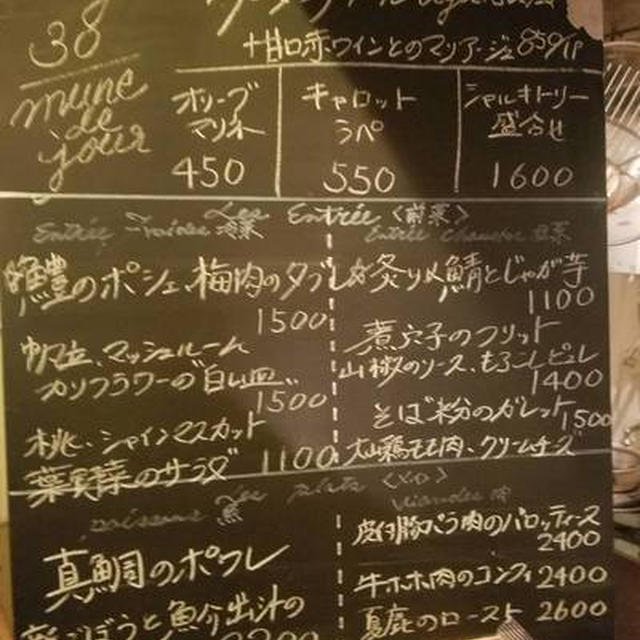 38
十甘口赤ワインとのマリアージュ 850
mune de jour
オリーブ マリネ
450
キャロット ラペ
550
シャルキトリー 盛合せ
1600
Les Entrée <前菜>
Entrée Froides 冷菜
Entrée Chaudes 温菜
鱧のポシェ、梅肉のタブレ
1500
帆立、マッシュルーム
カリフラワーの"白い皿"
1500
桃、シャインマスカット
葉野菜のサラダ 1100
炙り〆鯖とじゃが芋
1100
煮穴子のフリット
山椒のソース、もろこしピュレ
1400
そば粉のガレット 1500
大山鶏モモ肉、クリームチーズ
Les plats <メイン>
poissons 魚
viandes 肉
真鯛のポワレ
ごぼうと魚介出汁の
皮付豚バラ肉のバロッティーヌ
2400
牛ホホ肉のコンフィ 2400
夏鹿のロースト 2600